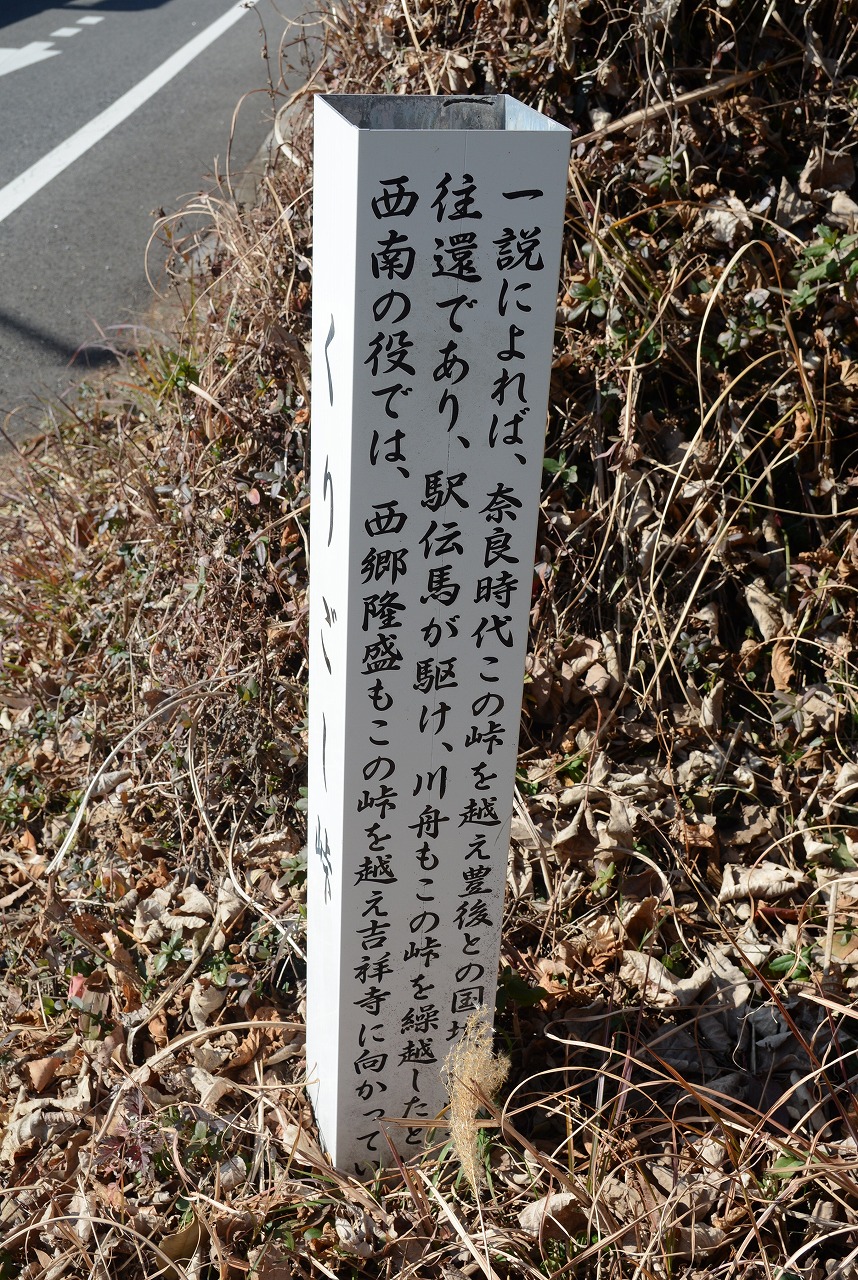 一説によれば、奈良時代この峠を越え豊後との国
往還であり、駅伝馬が駆け、川舟もこの峠を繰越したと
西南の役では、西郷隆盛もこの峠を越え吉祥寺に向かってい
くりごし峠